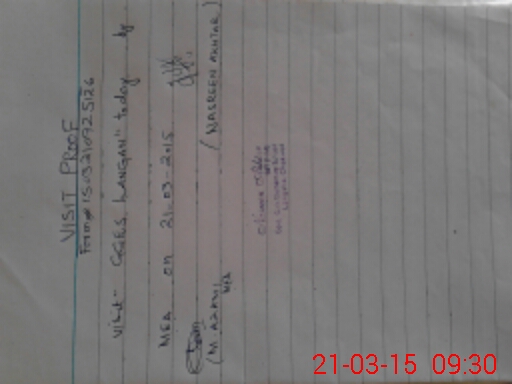 VISIT PROOF
Form# 1503210925126
Visit GGES LANGAN" today by
MEA on 21-03-2015
(M AZAM) (NASREEN AKHTAR)
MEA
21-03-15 09:30